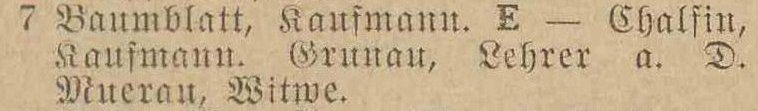 7 Baumblatt, Kaufmann. E — Chalfin,
Kaufmann. Grunau, Lehrer a. D.
Muerau, Witwe.